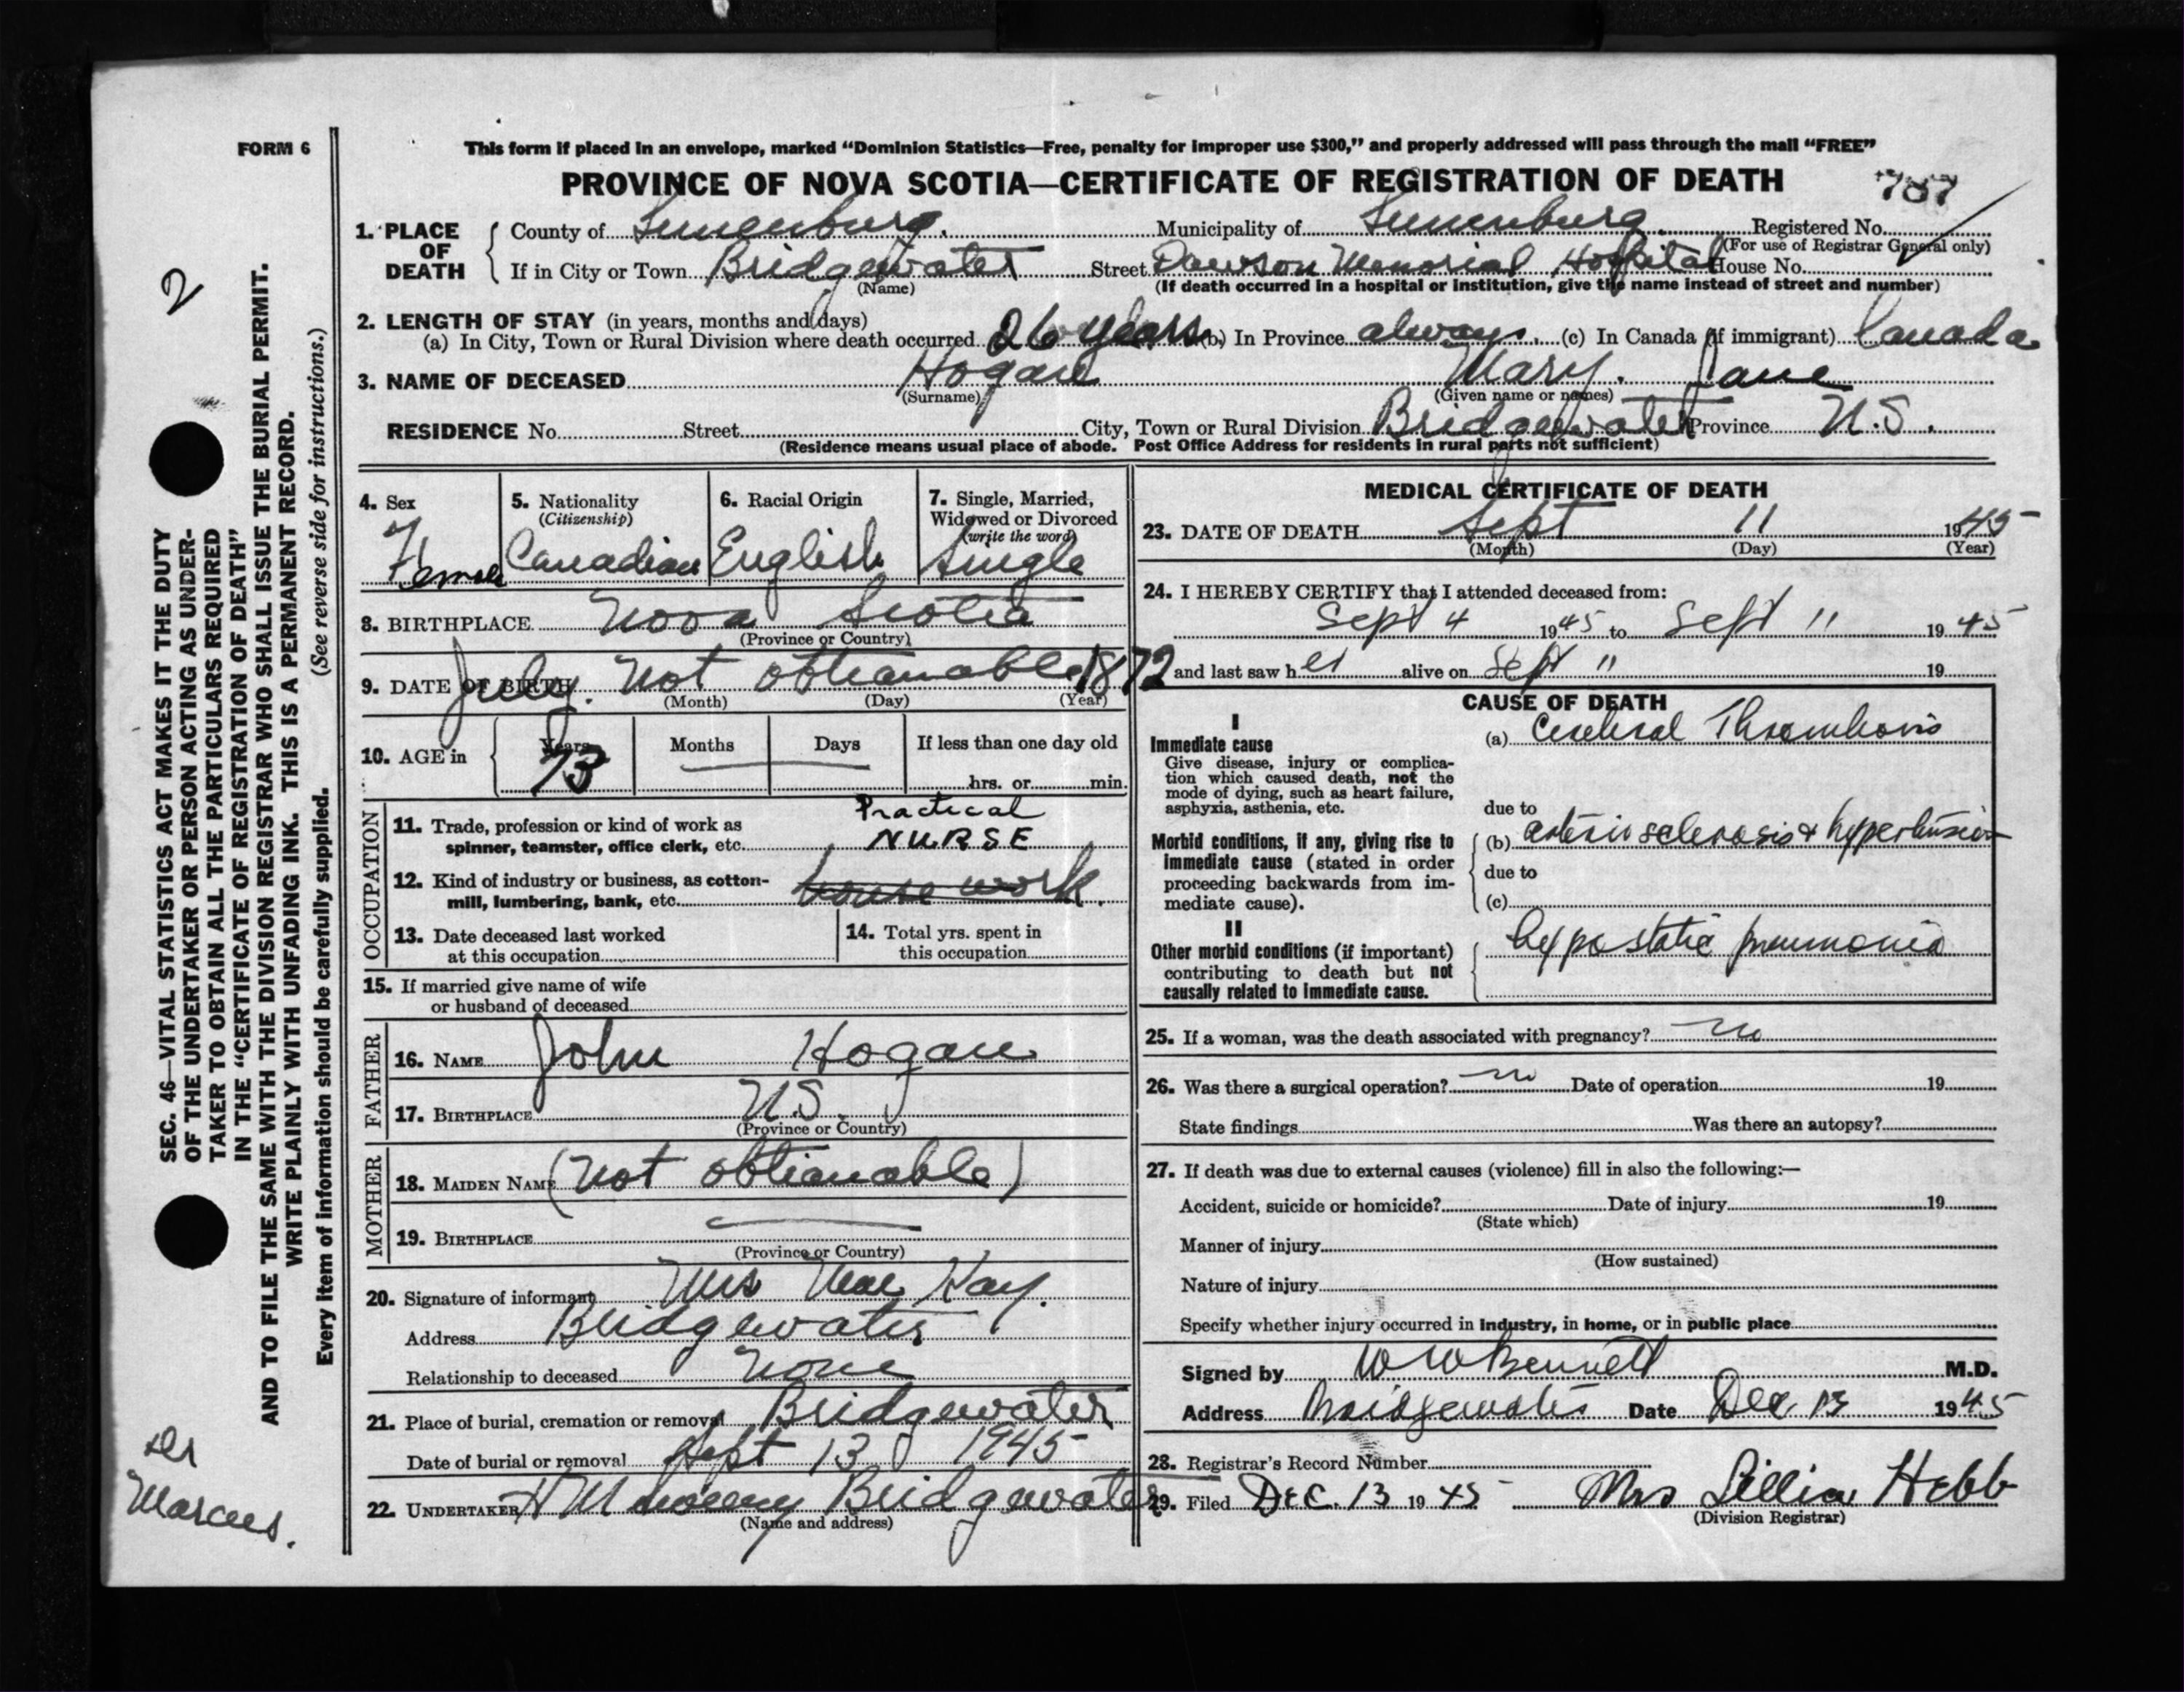 FORM 6
This form if placed in an envelope, marked “Dominion Statistics—Free, penalty for improper use $300,” and properly addressed will pass through the mail “FREE”
PROVINCE OF NOVA SCOTIA—CERTIFICATE OF REGISTRATION OF DEATH 787
1. PLACE OF DEATH County of Lunenburg. Municipality of Lunenburg. Registered No.
(For use of Registrar General only)
If in City or Town Bridgewater Street Dawson Memorial Hospital House No.
(Name) (If death occurred in a hospital or institution, give the name instead of street and number)
2. LENGTH OF STAY (in years, months and days)
(a) In City, Town or Rural Division where death occurred 26 years (b) In Province always. (c) In Canada (if immigrant) Canada
3. NAME OF DECEASED Hogan Mary. Jane
(Surname) (Given name or names)
RESIDENCE No. Street City, Town or Rural Division Bridgewater Province N.S.
(Residence means usual place of abode. Post Office Address for residents in rural parts not sufficient)
4. Sex
F
Female
5. Nationality
(Citizenship)
Canadian
6. Racial Origin
English
7. Single, Married,
Widowed or Divorced
(write the word)
Single
8. BIRTHPLACE Nova Scotia
(Province or Country)
9. DATE OF BIRTH July. Not obtianable 1872
(Month) (Day) (Year)
10. AGE in Years Months Days If less than one day old
73 hrs. or min.
OCCUPATION
11. Trade, profession or kind of work as Practical
spinner, teamster, office clerk, etc. NURSE
12. Kind of industry or business, as cotton-
mill, lumbering, bank, etc. house work.
13. Date deceased last worked
at this occupation
14. Total yrs. spent in
this occupation
15. If married give name of wife
or husband of deceased
FATHER
16. NAME John Hogan
17. BIRTHPLACE N.S.
(Province or Country)
MOTHER
18. MAIDEN NAME (Not obtianable)
19. BIRTHPLACE
(Province or Country)
20. Signature of informant Mrs Mac Kay.
Address Bridgewater
Relationship to deceased None
21. Place of burial, cremation or removal Bridgewater
Date of burial or removal Sept 13 1945
22. UNDERTAKER Bridgewater
(Name and address)
MEDICAL CERTIFICATE OF DEATH
23. DATE OF DEATH Sept 11 1945
(Month) (Day) (Year)
24. I HEREBY CERTIFY that I attended deceased from:
Sept 4 1945 to Sept 11 1945
and last saw her alive on Sept 11 19
CAUSE OF DEATH
I
Immediate cause
Give disease, injury or complica-
tion which caused death, not the
mode of dying, such as heart failure,
asphyxia, asthenia, etc.
(a) Cerebral Thrombosis
due to
Morbid conditions, if any, giving rise to
immediate cause (stated in order
proceeding backwards from im-
mediate cause).
(b) arterio sclerosis & hypertension
due to
(c)
II
Other morbid conditions (if important)
contributing to death but not
causally related to immediate cause.
hypostatic pneumonia
25. If a woman, was the death associated with pregnancy? no
26. Was there a surgical operation? no Date of operation 19
State findings Was there an autopsy?
27. If death was due to external causes (violence) fill in also the following:—
Accident, suicide or homicide? Date of injury 19
(State which)
Manner of injury
(How sustained)
Nature of injury
Specify whether injury occurred in industry, in home, or in public place
Signed by W W Bennett M.D.
Address Bridgewater Date Dec 13 1945
28. Registrar's Record Number
29. Filed Dec. 13 1945 Mrs Lillian Hebb
(Division Registrar)
2
SEC. 46—VITAL STATISTICS ACT MAKES IT THE DUTY
OF THE UNDERTAKER OR PERSON ACTING AS UNDER-
TAKER TO OBTAIN ALL THE PARTICULARS REQUIRED
IN THE “CERTIFICATE OF REGISTRATION OF DEATH”
AND TO FILE THE SAME WITH THE DIVISION REGISTRAR WHO SHALL ISSUE THE BURIAL PERMIT.
WRITE PLAINLY WITH UNFADING INK. THIS IS A PERMANENT RECORD.
Every item of information should be carefully supplied. (See reverse side for instructions.)
Dr
Marcus.